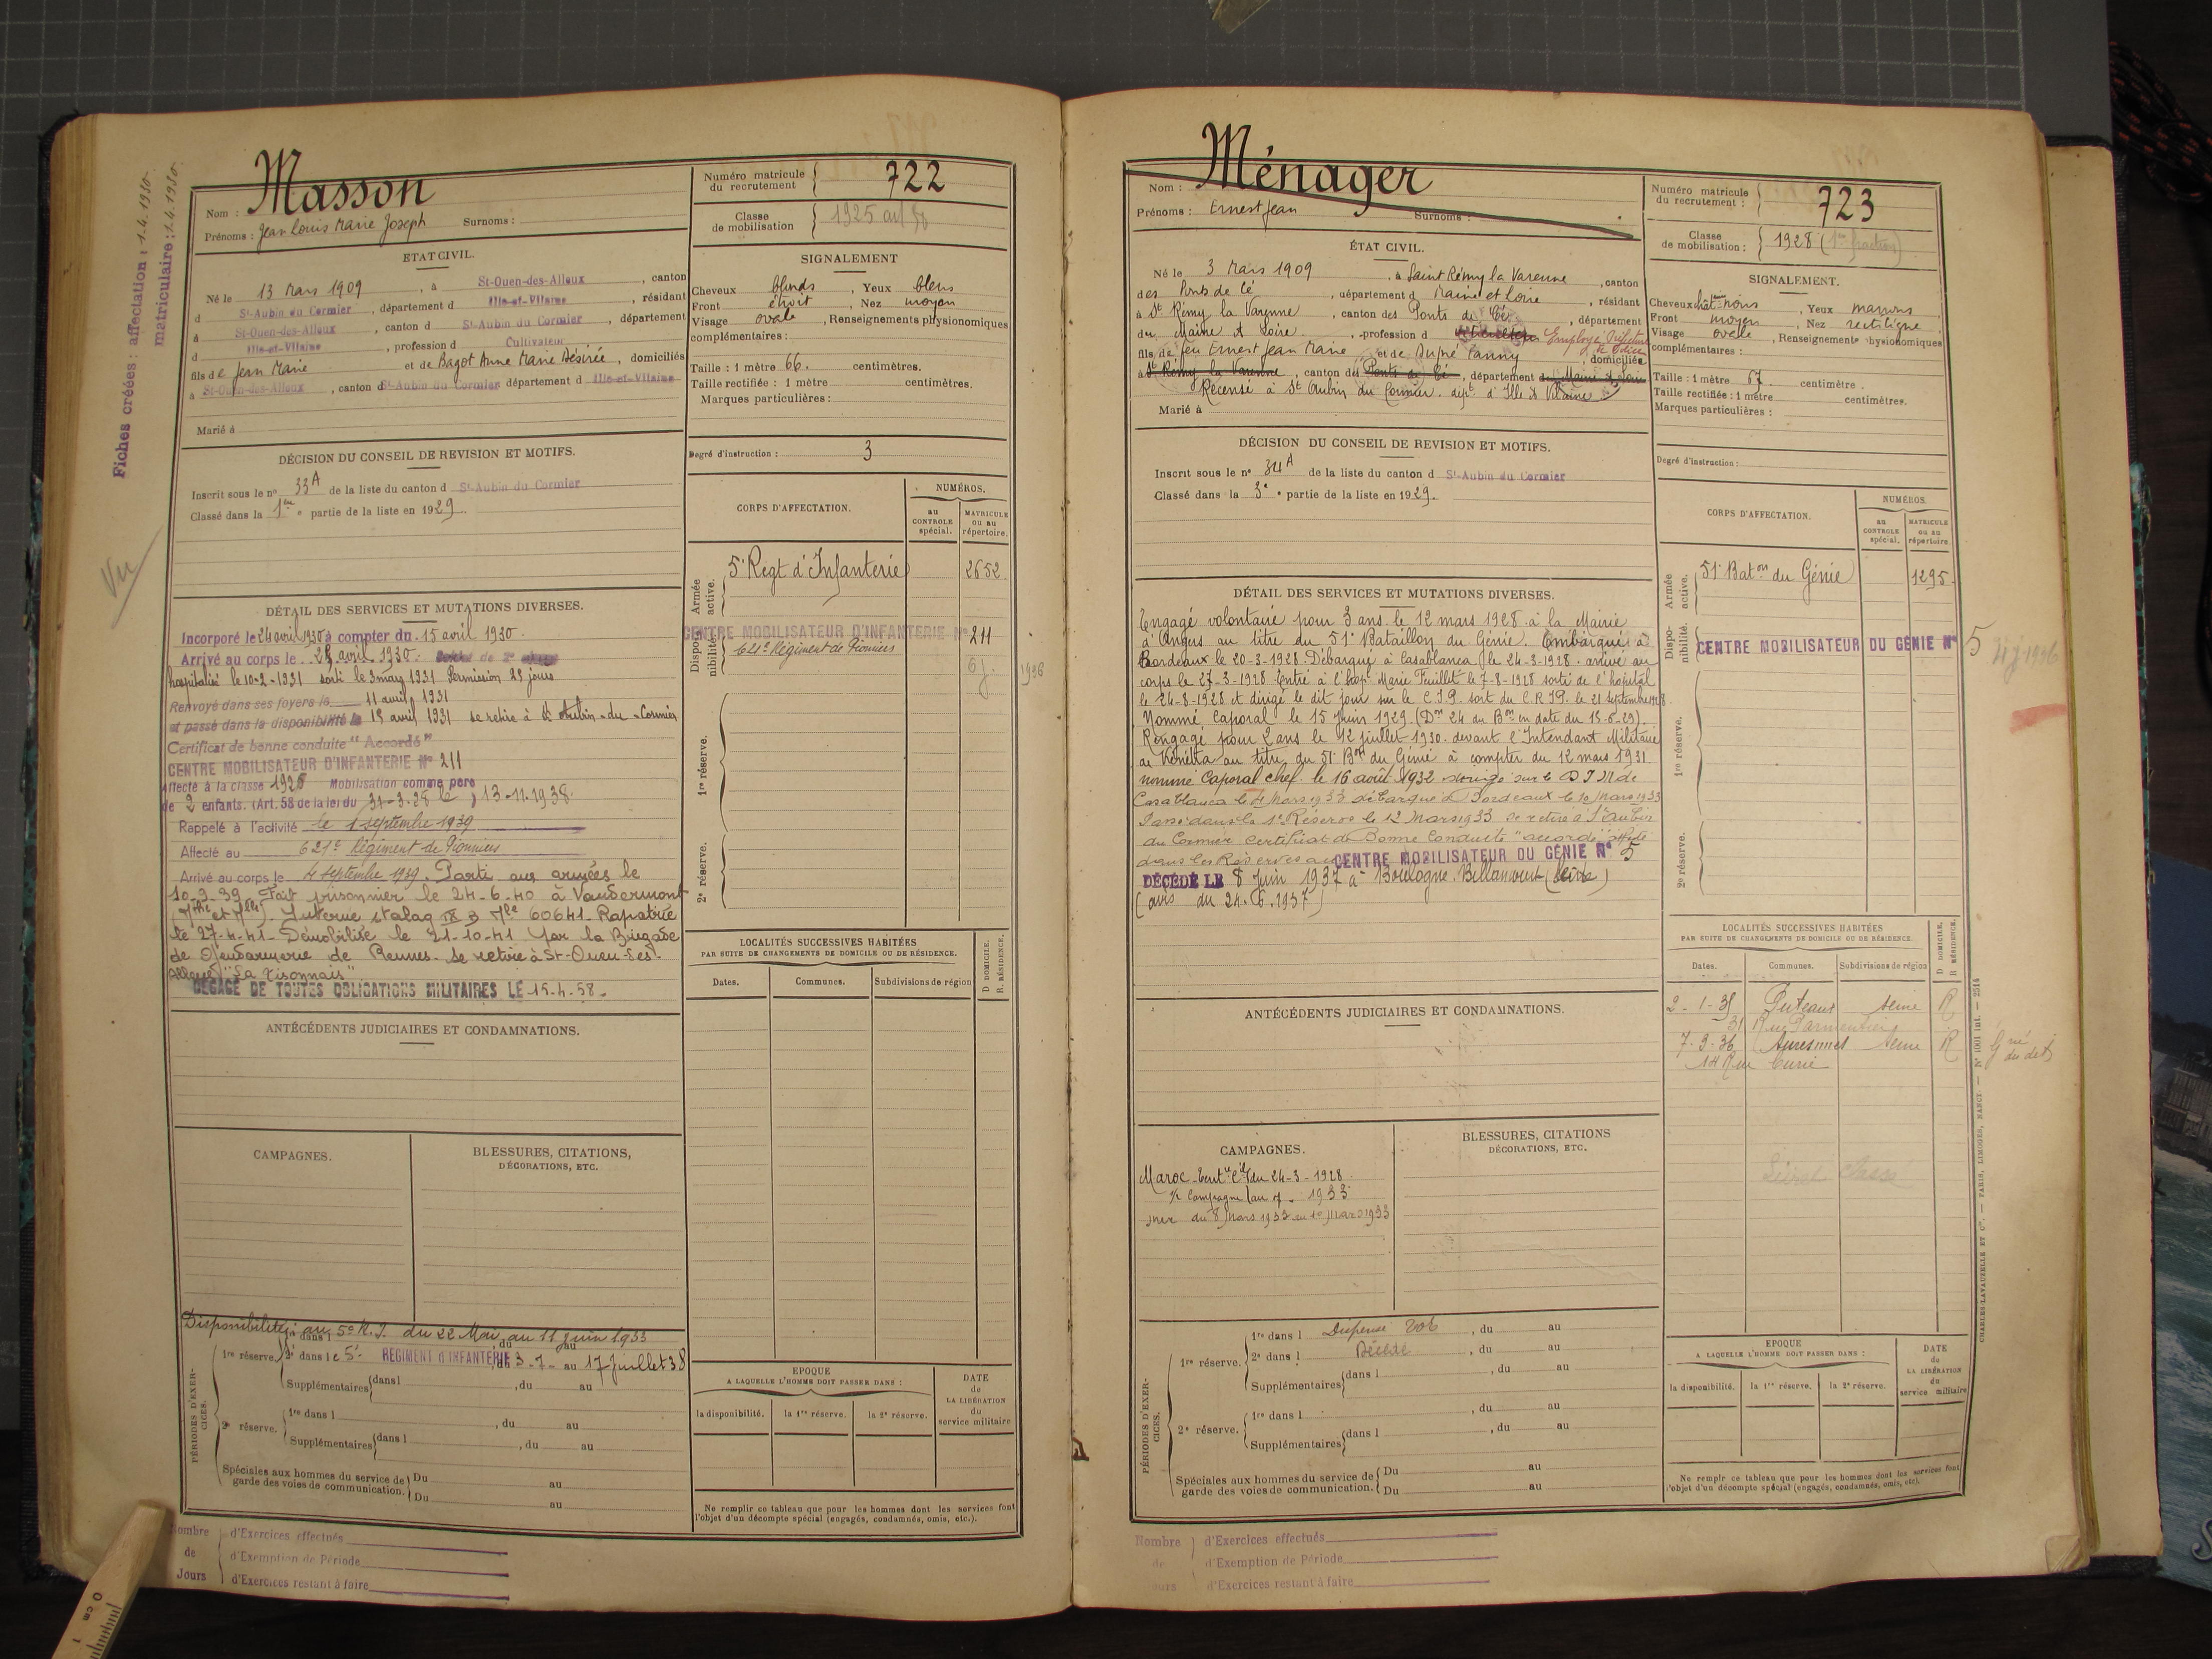 Fiches créées : affectation : 1.4.1930
matriculaire : 1.4.1930
Vu
Nom : Masson
Prénoms : Jean Louis Marie Joseph Surnoms :
Numéro matricule du recrutement 722
Classe de mobilisation 1925
ETAT CIVIL.
Né le 13 Mars 1909, à St-Ouen-des-Alleux, canton
d St-Aubin du Cormier, département d Ille-et-Vilaine, résidant
à St-Ouen-des-Alleux, canton d St-Aubin du Cormier, département
d Ille-et-Vilaine, profession d Cultivateur
fils de Jean Marie et de Bagot Anne Marie Désirée, domiciliés
à St-Ouen-des-Alleux, canton d St-Aubin du Cormier département d Ille-et-Vilaine
Marié à
SIGNALEMENT
Cheveux blonds, Yeux bleus
Front étroit, Nez moyen
Visage ovale, Renseignements physionomiques
complémentaires :
Taille : 1 mètre 66. centimètres.
Taille rectifiée : 1 mètre centimètres.
Marques particulières :
Degré d'instruction : 3
DÉCISION DU CONSEIL DE REVISION ET MOTIFS.
Inscrit sous le n° 33A de la liste du canton d St-Aubin du Cormier
Classé dans la 1ère partie de la liste en 1929.
CORPS D'AFFECTATION.
NUMÉROS.
au CONTROLE spécial.
MATRICULE ou au répertoire.
Armée active.
5e Regt d'Infanterie 2652
Disponibilité.
CENTRE MOBILISATEUR D'INFANTERIE N° 211
621e Régiment de Pionniers
6j. 1936
1re réserve.
2e réserve.
DÉTAIL DES SERVICES ET MUTATIONS DIVERSES.
Incorporé le 24 avril 1930 à compter du 15 avril 1930.
Arrivé au corps le 24 avril 1930. Soldat de 2e classe
hospitalisé le 10-2-1931 sorti le 3 mars 1931 Permission 28 jours
Renvoyé dans ses foyers le 11 avril 1931
et passé dans la disponibilité le 15 avril 1931 se retire à St Aubin-du-Cormier
Certificat de bonne conduite "Accordé"
CENTRE MOBILISATEUR D'INFANTERIE N° 211
Affecté à la classe 1925 Mobilisation comme père
de 2 enfants. (Art. 58 de la loi du 31-3-28 le 13-11-1938.
Rappelé à l'activité le 1 septembre 1939
Affecté au 621e Régiment de Pionniers
Arrivé au corps le 4 septembre 1939. Parti aux armées le
10-9-39 Fait prisonnier le 24-6-40 à Vaudermont
(Mthe et Mlle). Interné stalag IX B Mle 60641. Rapatrié
le 27-4-41. Démobilisé le 21-10-41 par la Brigade
de Gendarmerie de Rennes. Se retire à St-Ouen-des-
Alleux "La Tisonnais"
DÉGAGÉ DE TOUTES OBLIGATIONS MILITAIRES LE 15-4-58.
ANTÉCÉDENTS JUDICIAIRES ET CONDAMNATIONS.
LOCALITÉS SUCCESSIVES HABITÉES
PAR SUITE DE CHANGEMENTS DE DOMICILE OU DE RÉSIDENCE.
Dates. Communes. Subdivisions de région
D. DOMICILE. R. RÉSIDENCE.
CAMPAGNES.
BLESSURES, CITATIONS,
DÉCORATIONS, ETC.
PÉRIODES D'EXERCICES.
Disponibilité au 50 R.I. du 22 Mai au 11 juin 1933
1re réserve. 2e dans le 5e REGIMENT d'INFANTERIE du 3-7- au 17 Juillet 38
Supplémentaires dans l , du au
2e réserve. 1re dans l , du au
Supplémentaires dans l , du au
Spéciales aux hommes du service de garde des voies de communication. Du au
Du au
EPOQUE
A LAQUELLE L'HOMME DOIT PASSER DANS :
la disponibilité. la 1re réserve. la 2e réserve.
DATE de LA LIBÉRATION du service militaire
Ne remplir ce tableau que pour les hommes dont les services font
l'objet d'un décompte spécial (engagés, condamnés, omis, etc.).
Nombre de Jours
d'Exercices effectués
d'Exemption de Période
d'Exercices restant à faire
Nom : Ménager
Prénoms : Ernest Jean Surnoms :
Numéro matricule du recrutement : 723
Classe de mobilisation : 1928 (1re fraction)
ÉTAT CIVIL.
Né le 3 Mars 1909, à Saint Rémy la Varenne, canton
des Ponts de Cé, département d Maine et Loire, résidant
à St Rémy la Varenne, canton des Ponts de Cé, département
du Maine et Loire, profession d Employé Préfecture de Police
fils de feu Ernest Jean Marie et de Dupré Fanny, domiciliés
à St Rémy la Varenne, canton des Ponts de Cé, département du Maine et Loire
Recensé à St Aubin du Cormier. dépt d'Ille et Vilaine
Marié à
SIGNALEMENT.
Cheveux châtains, Yeux marrons
Front moyen, Nez rectiligne
Visage ovale, Renseignements physionomiques
complémentaires :
Taille : 1 mètre 67. centimètre.
Taille rectifiée : 1 mètre centimètres.
Marques particulières :
Degré d'instruction :
DÉCISION DU CONSEIL DE REVISION ET MOTIFS.
Inscrit sous le n° 34A de la liste du canton d St-Aubin du Cormier
Classé dans la 3e partie de la liste en 1929.
CORPS D'AFFECTATION.
NUMÉROS.
au CONTROLE spécial.
MATRICULE ou au répertoire.
Armée active.
51e Baton du Génie 1295
Disponibilité.
CENTRE MOBILISATEUR DU GÉNIE N° 5
1re réserve.
2e réserve.
DÉTAIL DES SERVICES ET MUTATIONS DIVERSES.
Engagé volontaire pour 3 ans le 12 mars 1928 à la Mairie
d'Angers au titre du 51e Bataillon du Génie. Embarqué à
Bordeaux le 20-3-1928. Débarqué à Casablanca le 24-3-1928. arrivé au
corps le 27-3-1928 Entré à l'hop. Marie Feuillet le 7-8-1928 sorti de l'hopital
le 24-8-1928 et dirigé le dit jour sur le C.I.P. sort du C.R.I.P. le 21 septembre 1928
Nommé Caporal le 15 Juin 1929. (Dn 24 du Bon en date du 15-6-29).
Rengagé pour 2 ans le 12 juillet 1930. devant l'Intendant Militaire
de Kénitra au titre du 51e Bon du Génie à compter du 12 mars 1931
nommé Caporal chef. le 16 août 1932 dirigé sur le D I M de
Casablanca le 4 Mars 1933 débarqué à Bordeaux le 10 Mars 1933
Passé dans la 1e Réserve le 12 Mars 1933 se retire à St Aubin
du Cormier certificat de Bonne Conduite "accordé" affecté
dans les Réserves au CENTRE MOBILISATEUR DU GÉNIE N° 5
DÉCÉDÉ LE 8 Juin 1937 à Boulogne. Billancourt (Seine)
(avis du 24.6.1937)
ANTÉCÉDENTS JUDICIAIRES ET CONDAMNATIONS.
LOCALITÉS SUCCESSIVES HABITÉES
PAR SUITE DE CHANGEMENTS DE DOMICILE OU DE RÉSIDENCE.
Dates. Communes. Subdivisions de région
D DOMICILE. R RÉSIDENCE.
2-1-35 Puteaux Seine R
31 Rue Parmentier
7.9.36 Suresnes Seine R
14 Rue Curie
CAMPAGNES.
Maroc du 24-3-1928
1933
mer du 8 Mars 1933 au 10 Mars 1933
BLESSURES, CITATIONS
DÉCORATIONS, ETC.
PÉRIODES D'EXERCICES.
1re réserve. 1re dans l Dispensé , du au
2e dans l Décédé , du au
Supplémentaires dans l , du au
2e réserve. 1re dans l , du au
Supplémentaires dans l , du au
Spéciales aux hommes du service de garde des voies de communication. Du au
Du au
EPOQUE
A LAQUELLE L'HOMME DOIT PASSER DANS :
la disponibilité. la 1re réserve. la 2e réserve.
DATE de LA LIBÉRATION du service militaire
Ne remplir ce tableau que pour les hommes dont les services font
l'objet d'un décompte spécial (engagés, condamnés, omis, etc).
CHARLES-LAVAUZELLE ET Cie. — PARIS, LIMOGES, NANCY. — N° 1001 Int. — 2514
Nombre de Jours
d'Exercices effectués
d'Exemption de Période
d'Exercices restant à faire
0 cm 1